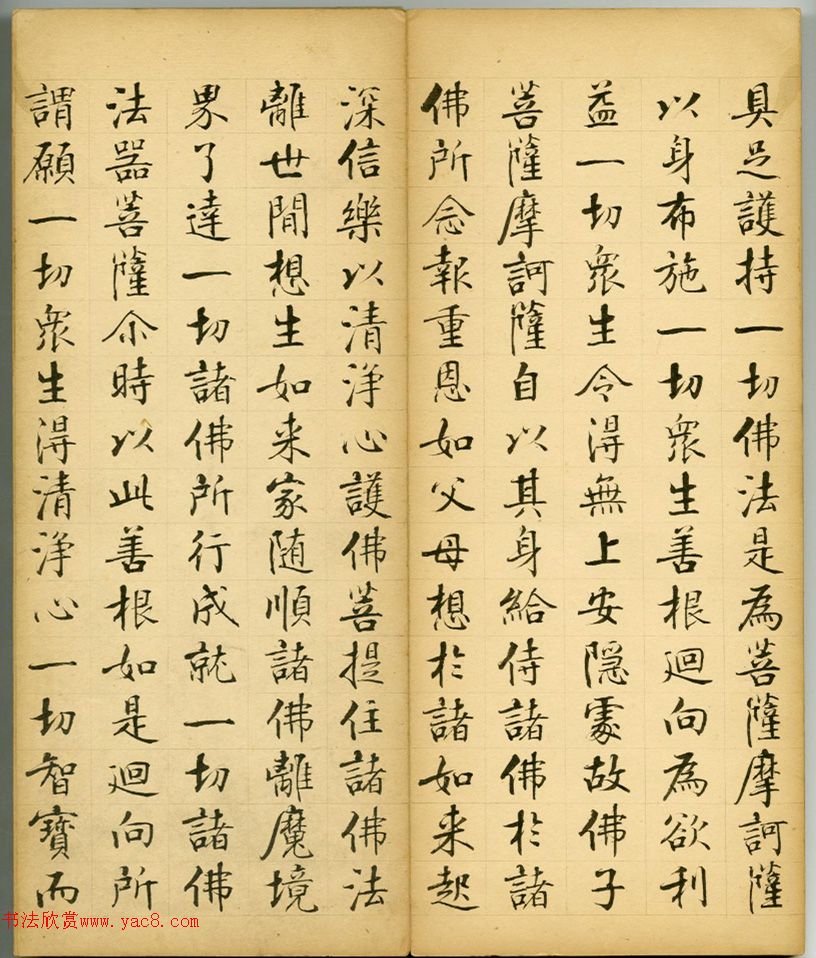 具足護持一切佛法是為菩薩摩訶薩
以身布施一切眾生善根迴向為欲利
益一切眾生令得無上安隱處故佛子
菩薩摩訶薩自以其身給侍諸佛於諸
佛所念報重恩如父母想於諸如来起
深信樂以清淨心護佛菩提住諸佛法
離世間想生如来家随順諸佛離魔境
界了達一切諸佛所行成就一切諸佛
法器菩薩尒時以此善根如是迴向所
謂願一切眾生得清淨心一切智寶而
书法欣赏www.yac8.com